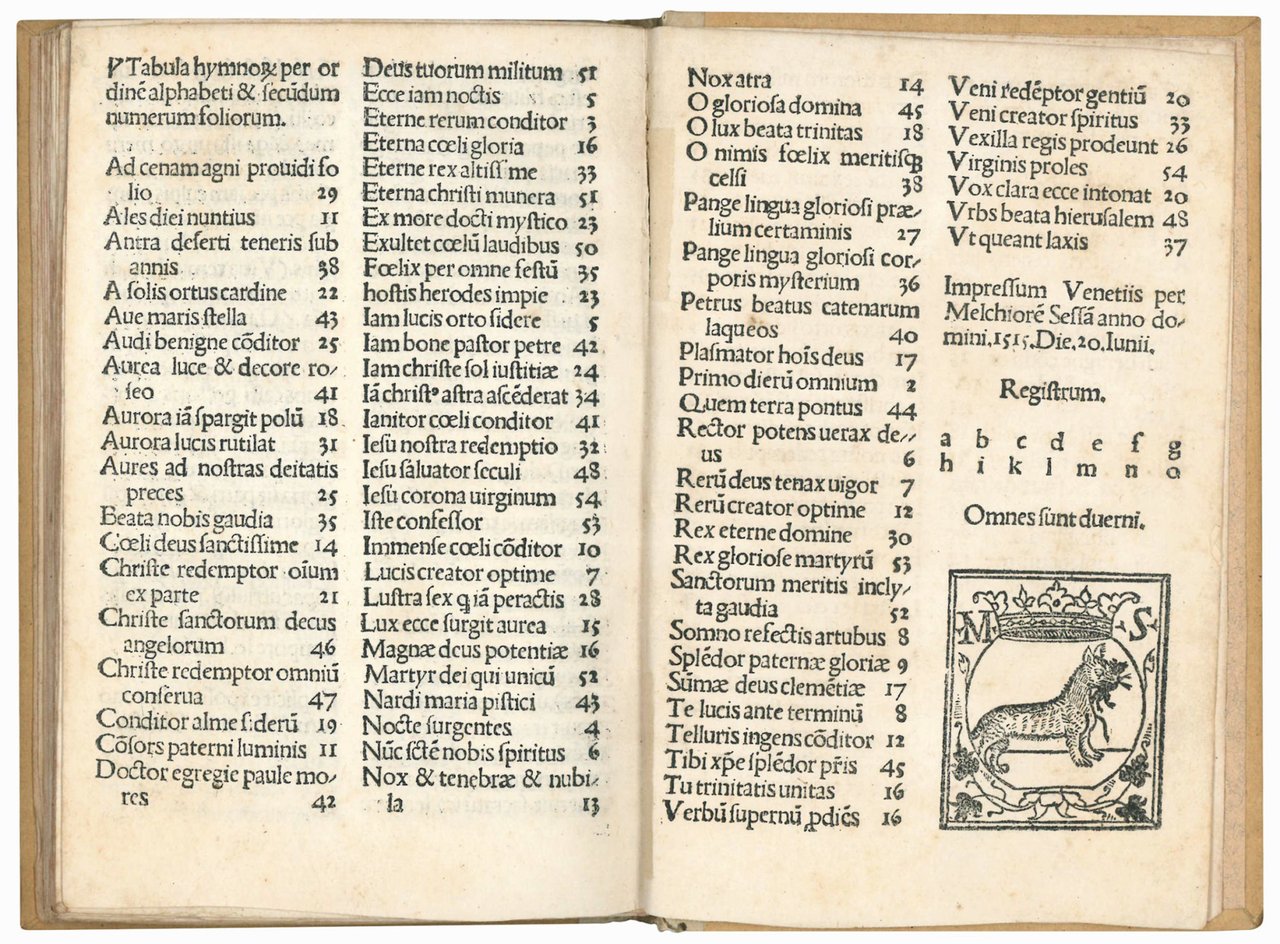 Tabula hymnoꝝ per or
dinē alphabeti & secūdum
numerum foliorum.
Ad cenam agni prouidi fo
lio 29
Ales diei nuntius 11
Antra deserti teneris sub
annis 38
A solis ortus cardine 22
Aue maris stella 43
Audi benigne cōditor 25
Aurea luce & decore ro-
seo 41
Aurora iā spargit polū 18
Aurora lucis rutilat 31
Aures ad nostras deitatis
preces 25
Beata nobis gaudia 35
Cœli deus sanctissime 14
Christe redemptor oīum
ex parte 21
Christe sanctorum decus
angelorum 46
Christe redemptor omniū
conserua 47
Conditor alme siderū 19
Cōsors paterni luminis 11
Doctor egregie paule mo-
res 42
Deus tuorum militum 51
Ecce iam noctis 5
Eterne rerum conditor 3
Eterna cœli gloria 16
Eterne rex altissime 33
Eterna christi munera 51
Ex more docti mystico 23
Exultet cœlū laudibus 50
Fœlix per omne festū 35
hostis herodes impie 23
Iam lucis orto sidere 5
Iam bone pastor petre 42
Iam christe sol iustitiæ 24
Iā christꝰ astra ascēderat 34
Ianitor cœli conditor 41
Iesu nostra redemptio 32
Iesu saluator seculi 48
Iesu corona uirginum 54
Iste confessor 53
Immense cœli cōditor 10
Lucis creator optime 7
Lustra sex q iā peractis 28
Lux ecce surgit aurea 15
Magnæ deus potentiæ 16
Martyr dei qui unicū 52
Nardi maria pistici 43
Nocte surgentes 4
Nūc sctē nobis spiritus 6
Nox & tenebræ & nubi-
la 13
Nox atra 14
O gloriosa domina 45
O lux beata trinitas 18
O nimis fœlix meritisqꝫ
celsi 38
Pange lingua gloriosi præ-
lium certaminis 27
Pange lingua gloriosi cor-
poris mysterium 36
Petrus beatus catenarum
laqueos 40
Plasmator hoīs deus 17
Primo dierū omnium 2
Quem terra pontus 44
Rector potens uerax de-
us 6
Rerū deus tenax uigor 7
Rerū creator optime 12
Rex eterne domine 30
Rex gloriose martyrū 53
Sanctorum meritis incly-
ta gaudia 52
Somno refectis artubus 8
Splēdor paternæ gloriæ 9
Sūmæ deus clemētiæ 17
Te lucis ante terminū 8
Telluris ingens cōditor 12
Tibi xp̄e splēdor pr̄is 45
Tu trinitatis unitas 16
Verbū supernū ꝓdiēs 16
Veni redēptor gentiū 20
Veni creator spiritus 33
Vexilla regis prodeunt 26
Virginis proles 54
Vox clara ecce intonat 20
Vrbs beata hierusalem 48
Vt queant laxis 37
Impressum Venetiis per
Melchiorē Sessā anno do-
mini.1515.Die.20.Iunii.
Registrum.
a b c d e f g
h i k l m n o
Omnes sunt duerni.
M S